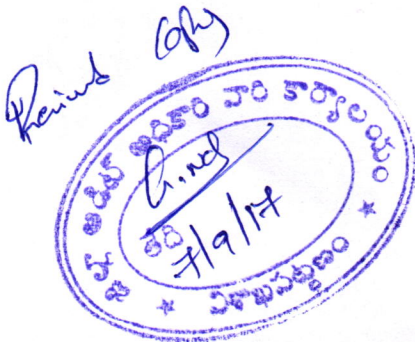 Received Copy
జిల్లా ఆడిట్ అధికారి వారి కార్యాలయం
తేది
7/9/17
★ విశాఖపట్నణం ★